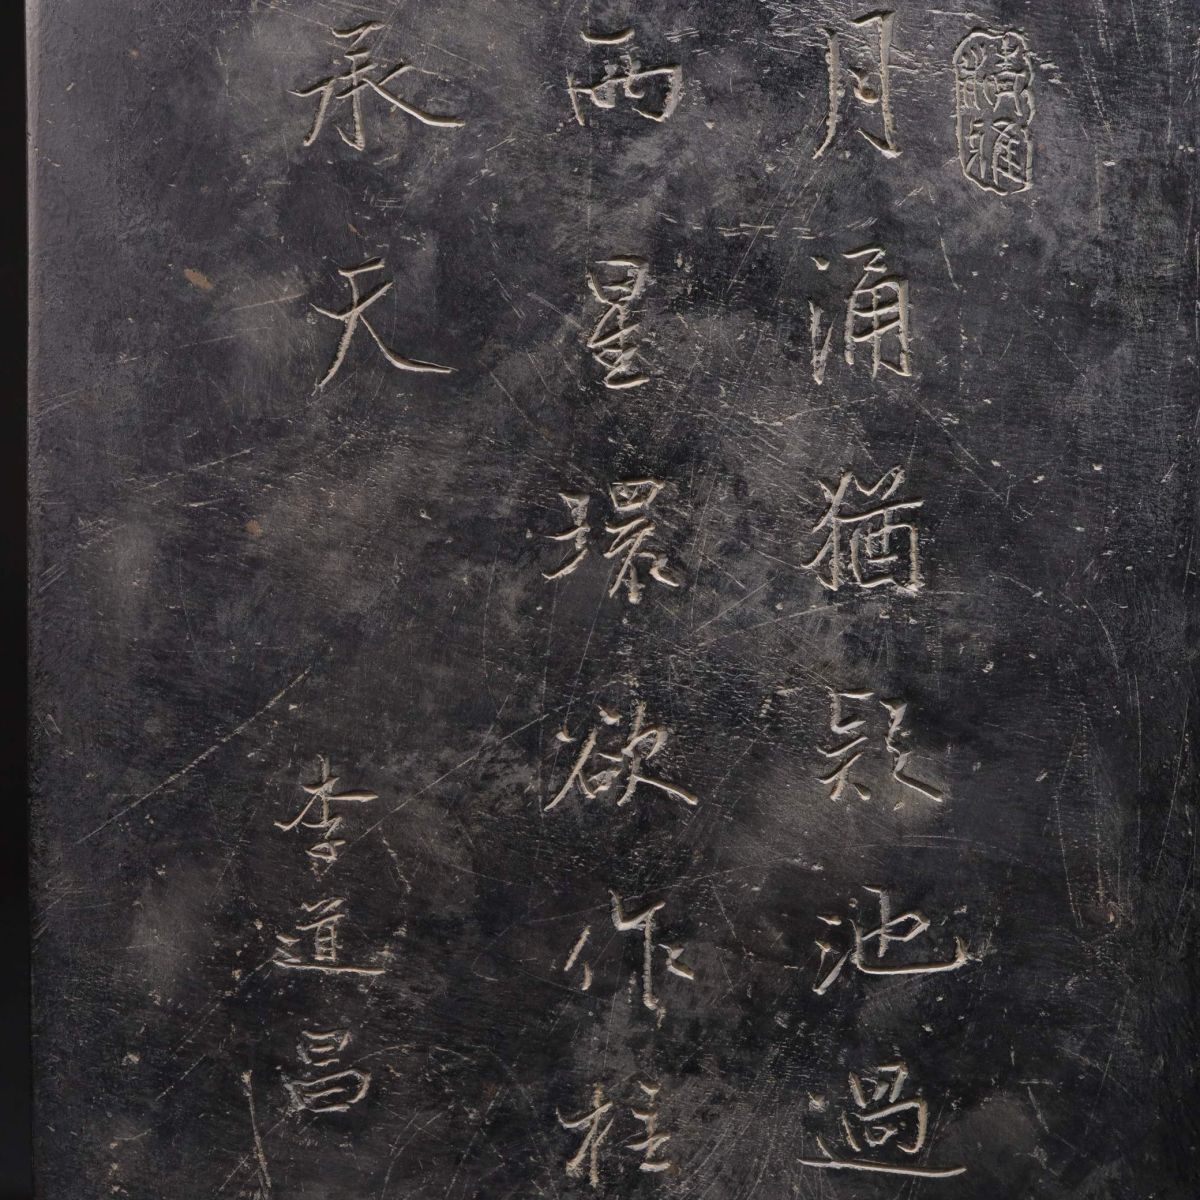 月涌猶疑池過
雨星環欲作柱
承天
李道昌